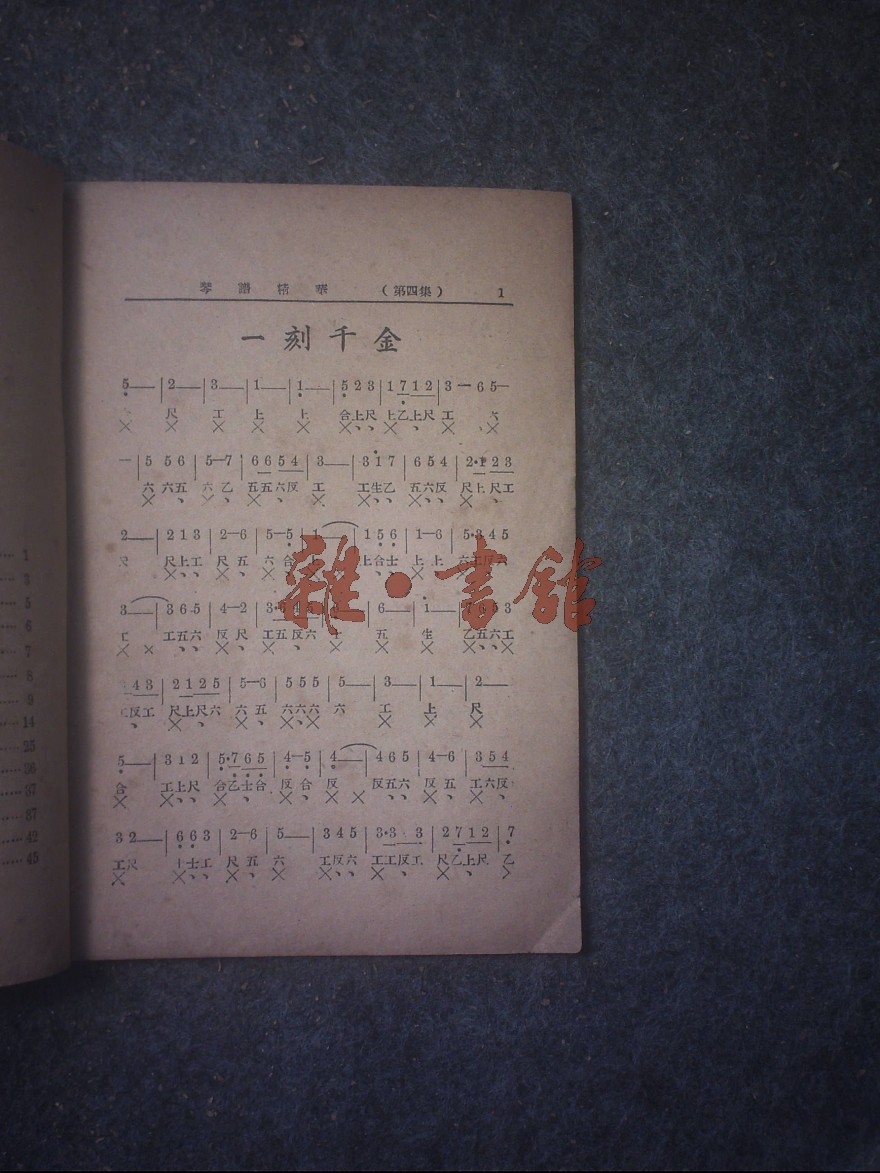 琴譜精華 （第四集） 1
一刻千金
5—— |2—— |3—— |1—— |1—— |5 2 3 |1 7 1 2 |3 — 6 5—
尺 工 上 上 合上尺 上乙上尺 工 六
— |5 5 6 |5—7 |6 6 5 4 |3—— |3 1 7 |6 5 4 |2·1 2 3
六 六五 六 乙 五五六反 工 工生乙 五六反 尺上尺工
2—— |2 1 3 |2—6 |5—5 |1—— |1 5 6 |1—6 |5·3 4 5
尺 尺上工 尺 五 六 合 上 上合士 上 上 六工反六
3—— |3 6 5 |4—2 |3·6 4 5 6—— |1——
工 工五六 反 尺 工五反六 五 生 乙五六工
4 3 |2 1 2 5 |5—6 |5 5 5 |5—— |3—— |1—— |2——
反工 尺上尺六 六 五 六六六 六 工 上 尺
5—— |3 1 2 |5·7 6 5 |4—5 |4—— |4 6 5 |4—6 |3 5 4
合 工上尺 合乙士合 反 合 反 反五六 反 五 工六反
3 2—— |6 6 3 |2—6 |5—— |3 4 5 |3·3 3 |2 7 1 2 |7
工尺 士士工 尺 五 六 工反六 工工反工 尺乙上尺 乙
1
3
5
6
7
8
9
14
25
36
37
37
42
45
雜·書館